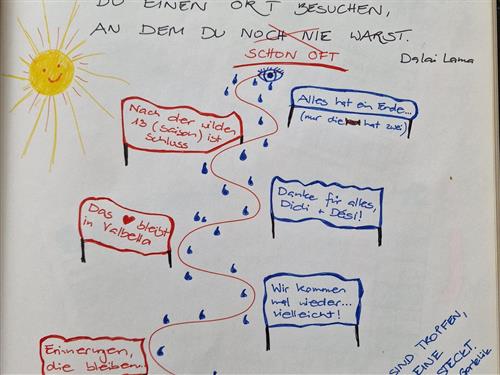 DU EINEN ORT BESUCHEN,
AN DEM DU NOCH NIE WARST.
SCHON OFT
Dalai Lama
Nach der wilden
13 (Saison) ist
Schluss
Alles hat ein Ende...
(nur die hat zwei)
Das ❤ bleibt
in Valbella
Danke für alles,
Didi + Dési!
Wir kommen
mal wieder...
vielleicht!
Erinnerungen,
die bleiben...
SIND TROPFEN,
EINE
STECKT